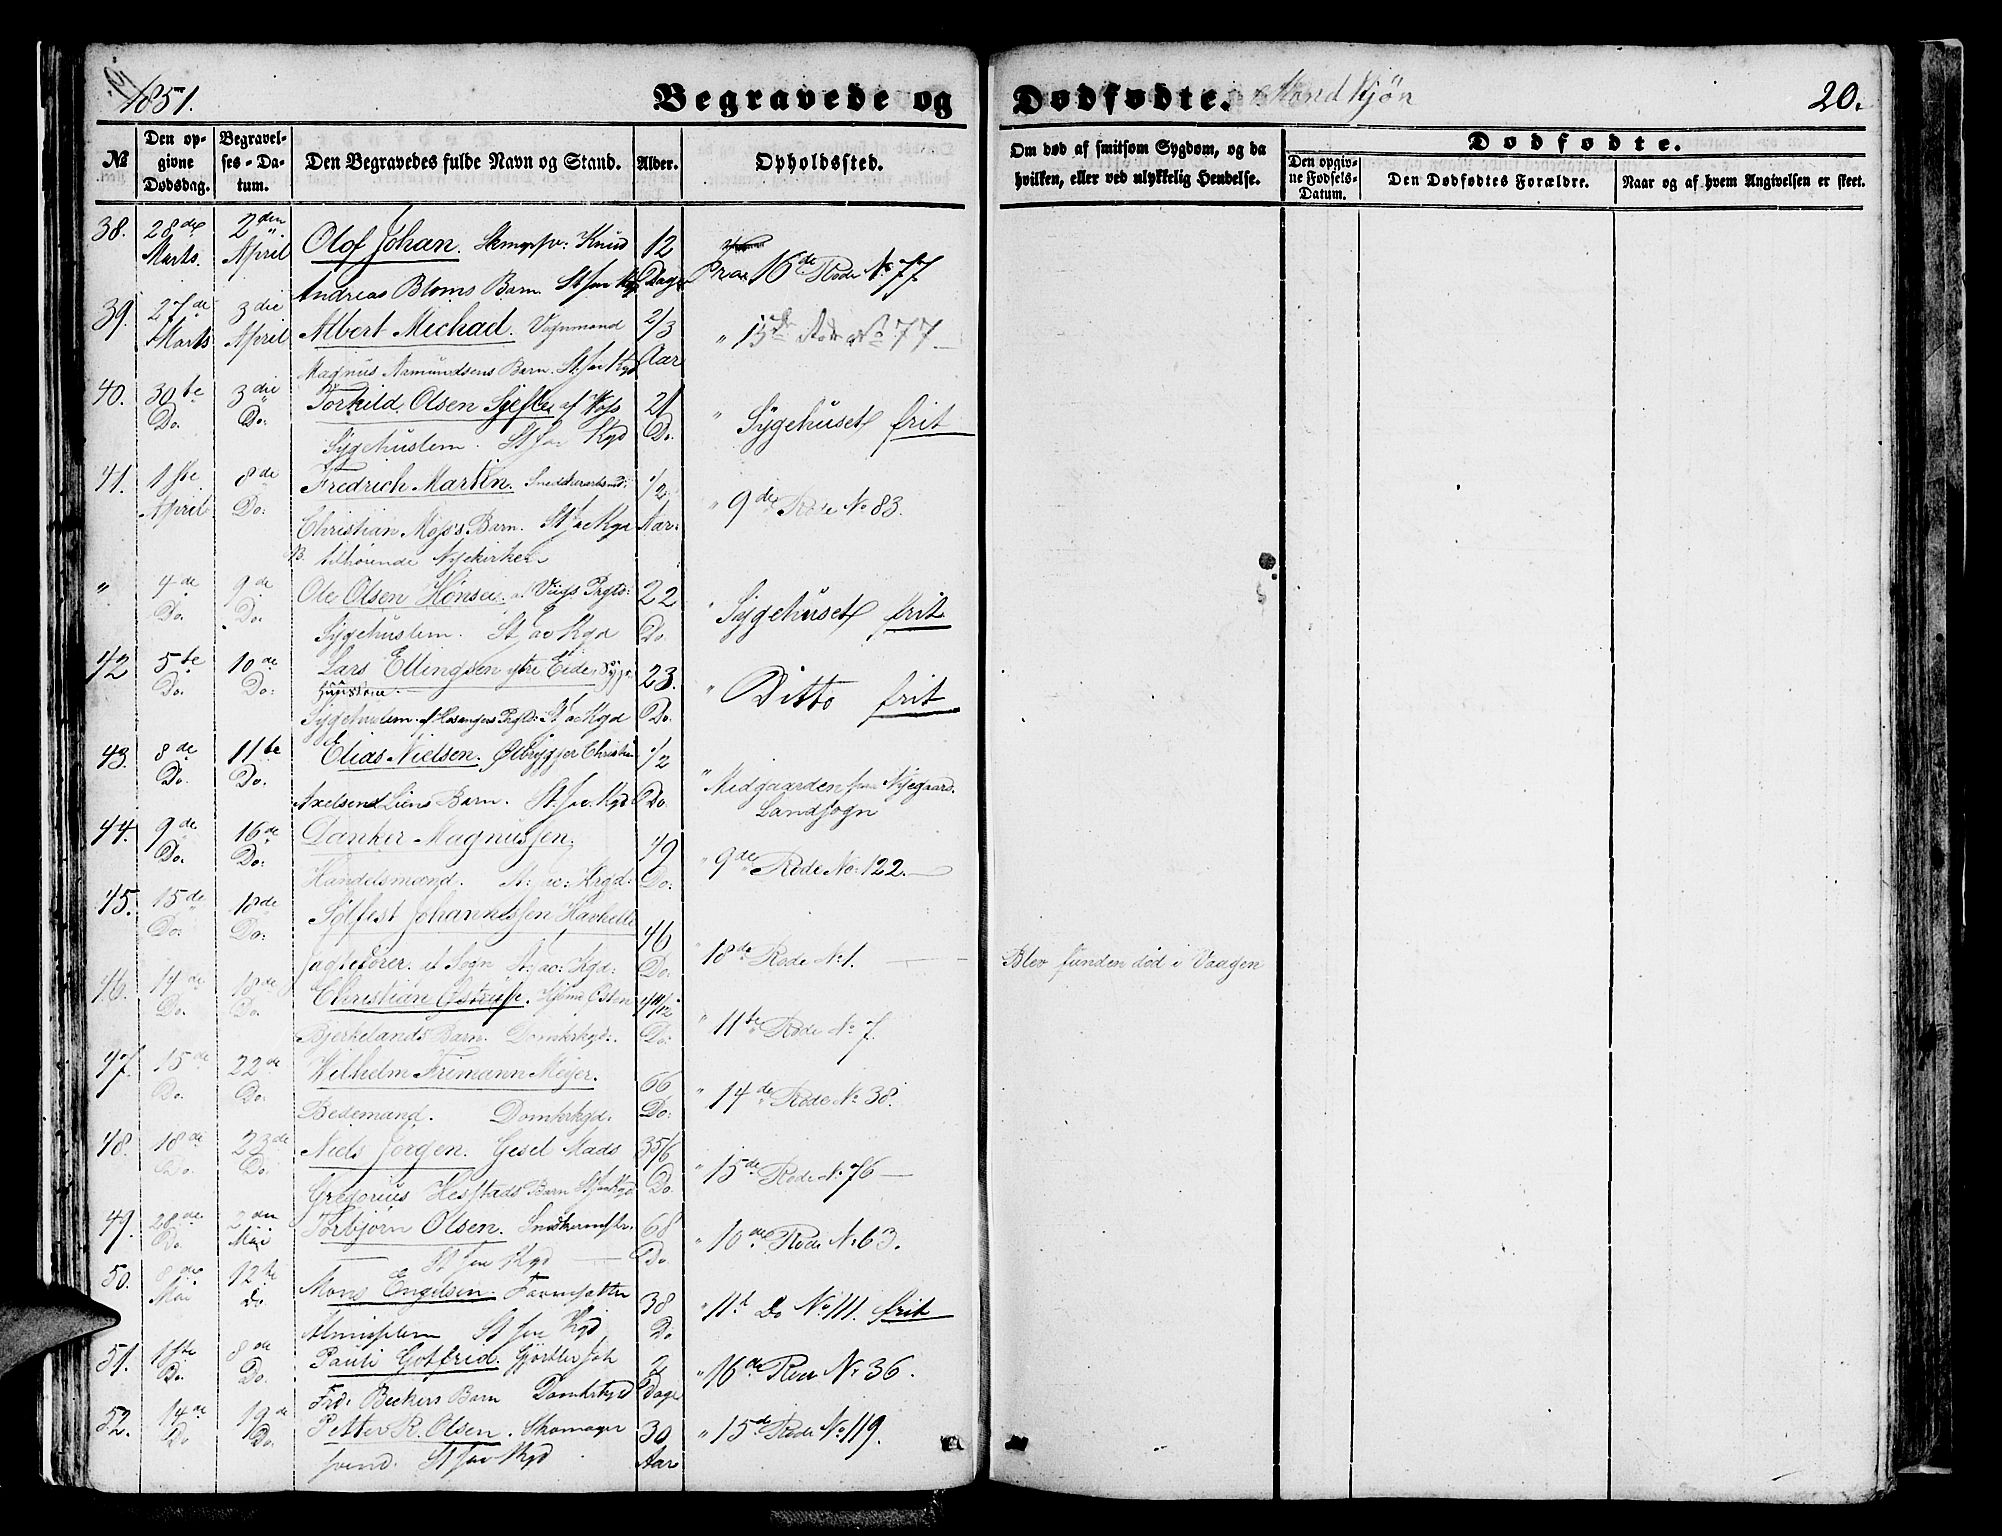 1851.
Begravede og Dødfødte. Mandkjøn
20.
№
Den opgivne Dødsdag.
Begravelses-Datum.
Den Begravedes fulde Navn og Stand.
Alder.
Opholdssted.
Om død af smitsom Sygdom, og da hvilken, eller ved ulykkelig Hendelse.
Dødfødte.
Den opgivne Fødsels-Datum.
Den Dødfødtes Forældre.
Naar og af hvem Angivelsen er skeet.
38. 28de Marts. 2den April Olof Johan. Knud 12 Dage 16de Rode No 77.
Andreas Bloms Barn. St Jac Kgd
39. 27de Marts 3die April Albert Michael. Vognmand 2/3 Aar " 15de Rode No 77
Magnus Aamundsens Barn. St Jac Kgd
40. 30te Do. 3die Do: Torkild Olsen af Voss 21 Do. " Sygehuset frit
Sygehuslem. St Jac Kgd
41. 1ste April 8de Do: Fredrich Martin. 1/2 Aar: " 9de Rode No 83.
Christian Moss's Barn. St Jac Kgd
tilhørende Nyekirken
" 4de Do: 9de Do: Ole Olsen Prgld: 22 Do. " Sygehuset frit
Sygehuslem. St Jac Kgd
42 5te Do: 10de Do: Lars Ellingsen ytre Eide, 23. Do. " Ditto frit
Sygehuslem. af Hosangers Prgld: St Jac Kgd
43. 8de Do: 11te Do: Elias Nielsen. Ølbrygger Christian 1/2 Do. " Midgaarden Nyegaards
Axelsen Liens Barn. St. Jac. Kgd Landsogn
44. 9de Do. 16de Do: Danker Magnussen. 49 Do: " 9de Rode No: 122.
Handelsmand. St: Jac: Krgd:
45. 15de Do: 18de Do: Sølfest Johannessen 46 Do: " 18de Rode No 1. Blev funden død i Vaagen
Jagtefører. af Sogn St: Jac: Kgd:
46. 14de Do: 18de Do: Christian Østen 4 11/12 Do: " 11te Rode No 7.
Bjerkelands Barn. Domkrkgd:
47. 15de Do: 22de Do: Wilhelm Frimann Meyer. 66 Do: " 14de Rode No 38.
Bedemand. Domkrkgd.
48. 18de Do: 23de Do: Niels Jørgen. Gesel Mads 3 5/6 Do. " 15de Rode No 76
Gregorius Hesstads Barn St Jac Kgd
49. 28de Do. 2den Mai Torbjørn Olsen. Snedkermstr. 68 Do. " 10de Rode No 63.
St Jac Kgd
50. 8de Mai 12te do. Mons Engelsen. 38 Do " 11te Do No 111. frit
Almisselem St Jac Kgd
51. 1ste Do. 8de Do. Pauli Gotfried. Gjørtler Joh 2 Dage " 16de Rode No 36.
Frd. Beckers Barn Domkrkgd
52. 14de Do 19de Do. Petter R. Olsen. Skomager 30 Aar " 15de Rode No 119.
svend. St Jac Kgd